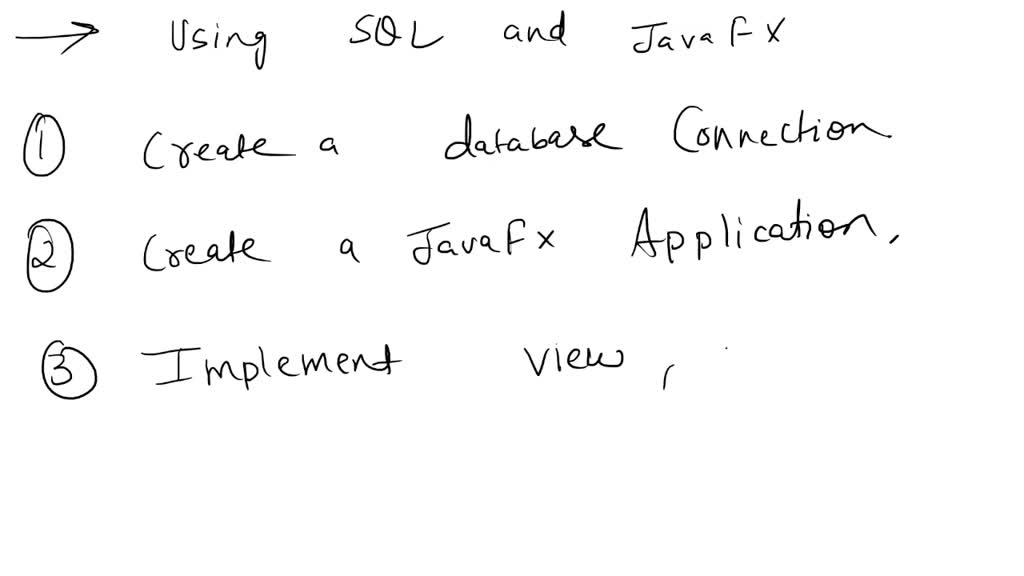 → Using SQL and JavaFX
① Create a database Connection
② Create a JavaFx Application.
③ Implement view,